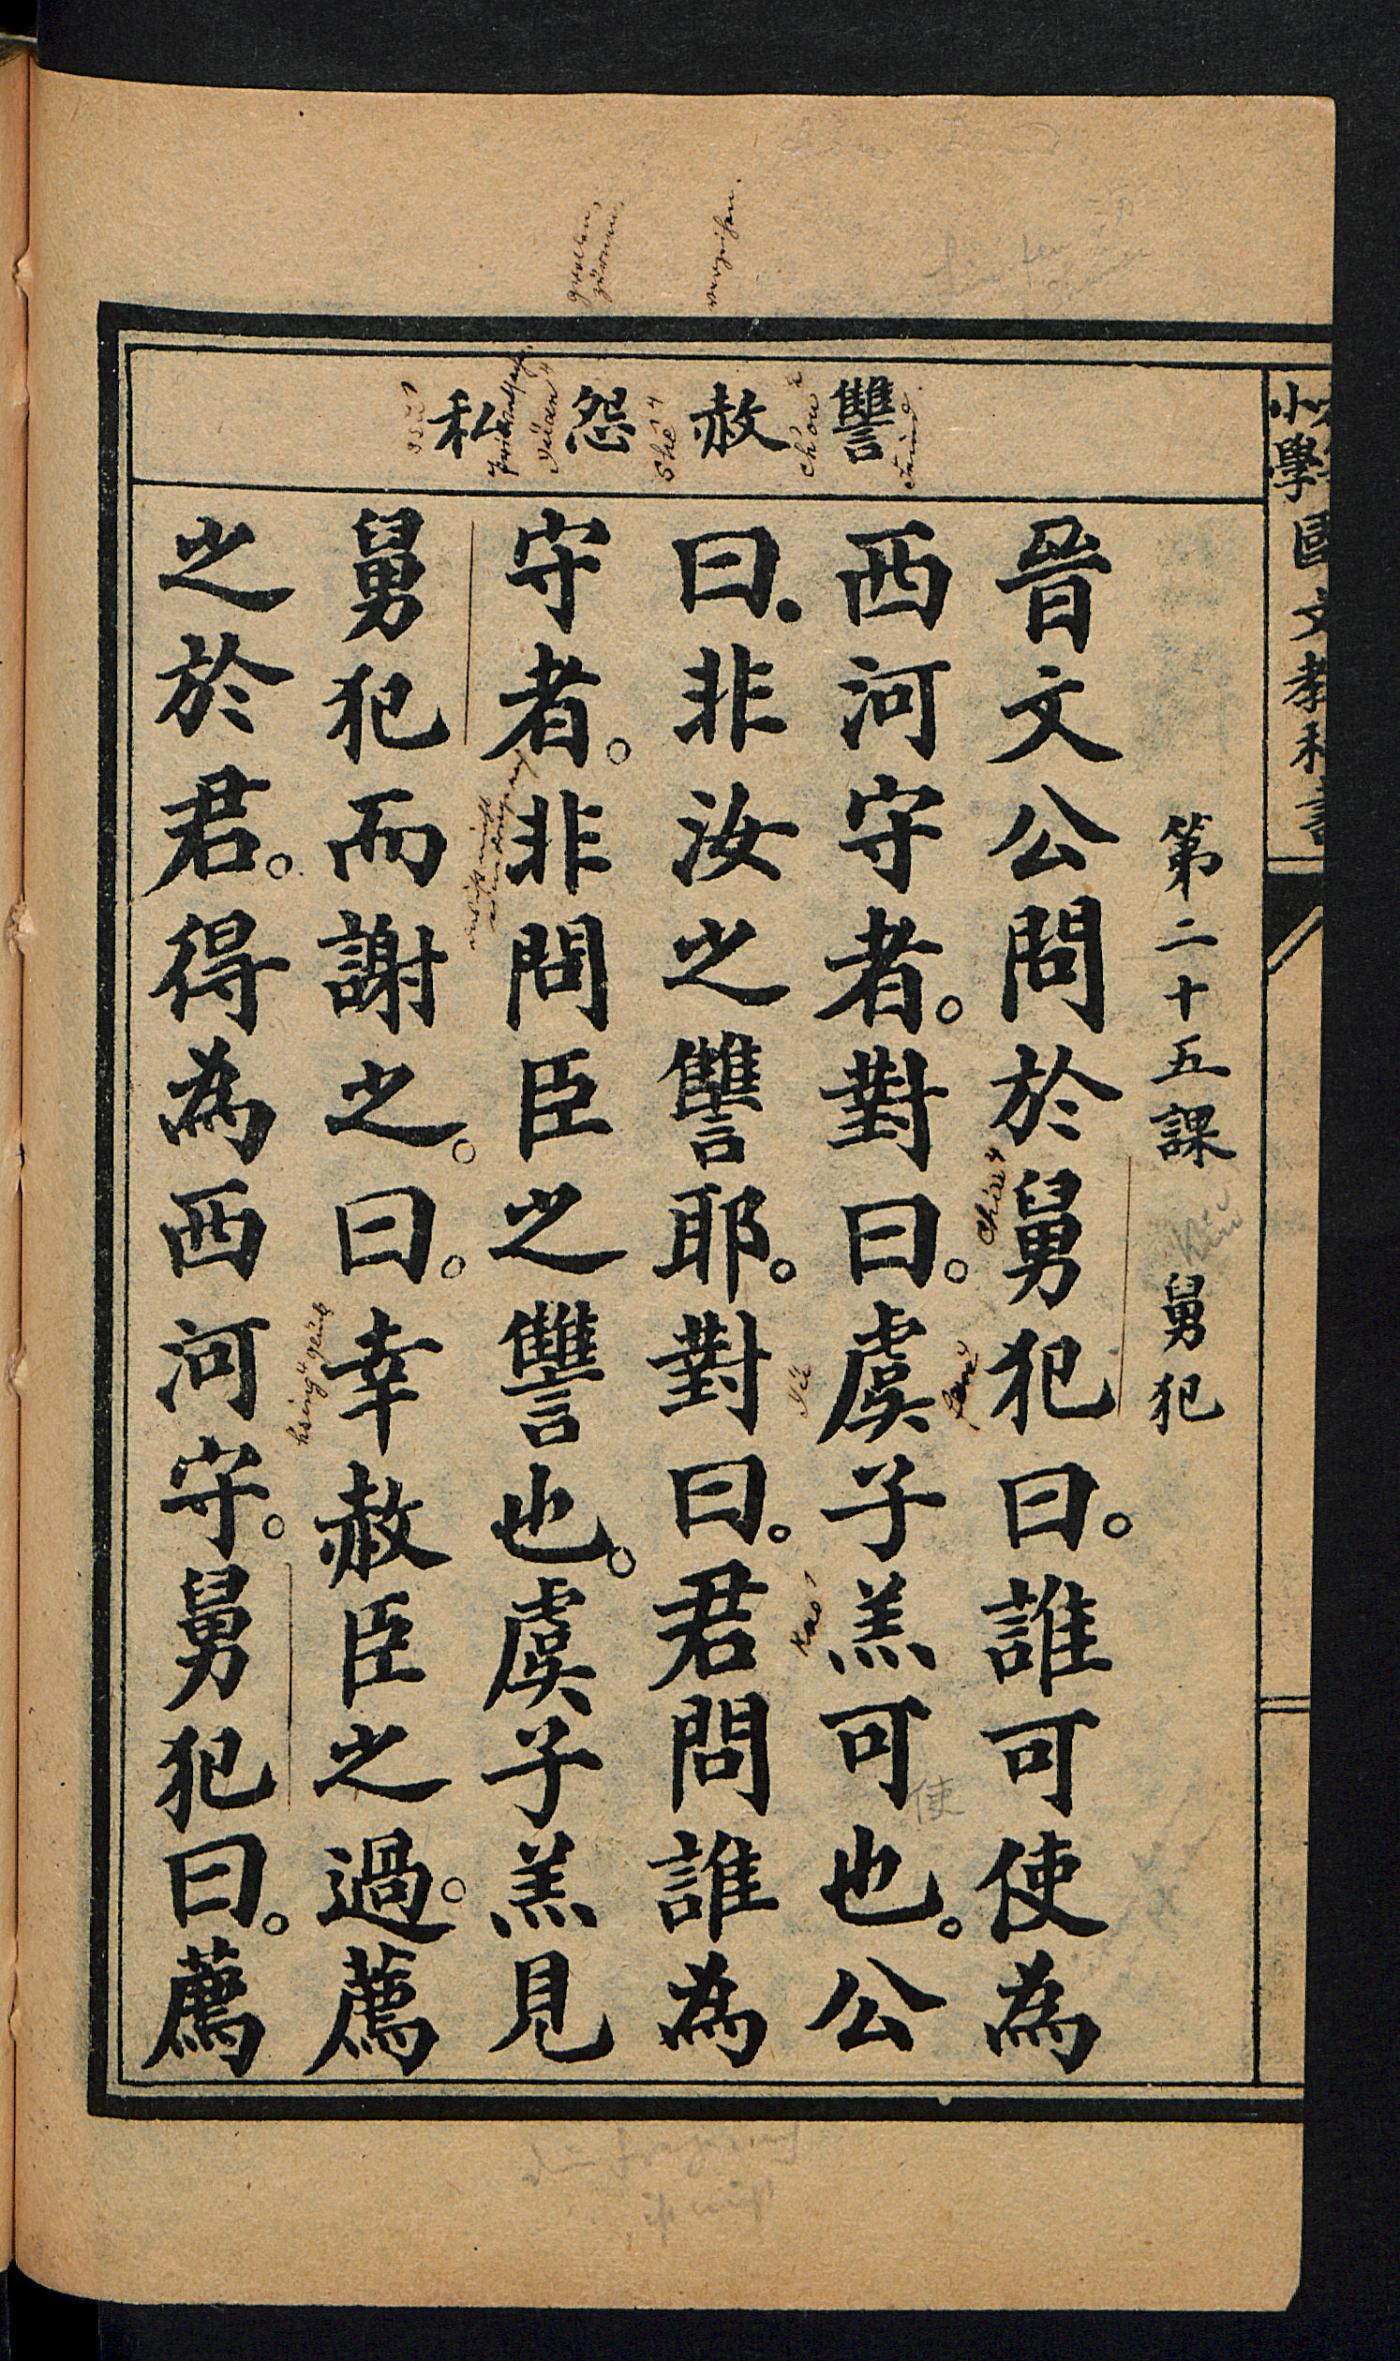 讐 赦 怨 私
第二十五課 舅犯
晉文公問於舅犯曰。誰可使為
西河守者。對曰。虞子羔可也。公
曰。非汝之讐耶。對曰。君問誰為
守者。非問臣之讐也。虞子羔見
舅犯而謝之。曰。幸赦臣之過。薦
之於君。得為西河守。舅犯曰。薦
小學國文教科
使
ch'ou²
shê⁴
yüan⁴
chiu⁴
fan⁴
yü
kao¹